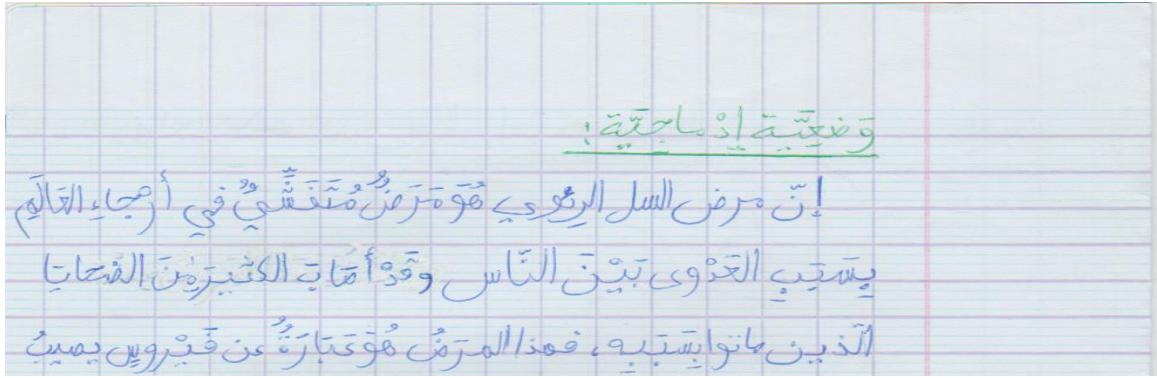 وَضعِيَّة إدْماجِيَّة :
إنّ مرض السل الرئوي هُوَ مَرَضٌ مُتَفَشِّيٌ في أرجاءِ العَالَمِ
بِسَبَبِ العَدْوى بَيْنَ النَّاس وقَدْ أصَابَ الكَثيرَ مِنَ الضَحَايَا
الّذين ماتوا بِسَبَبِه ، فهذا المرَضُ هُوَ عَبَارَةٌ عن فَيْروسٍ يصيبُ